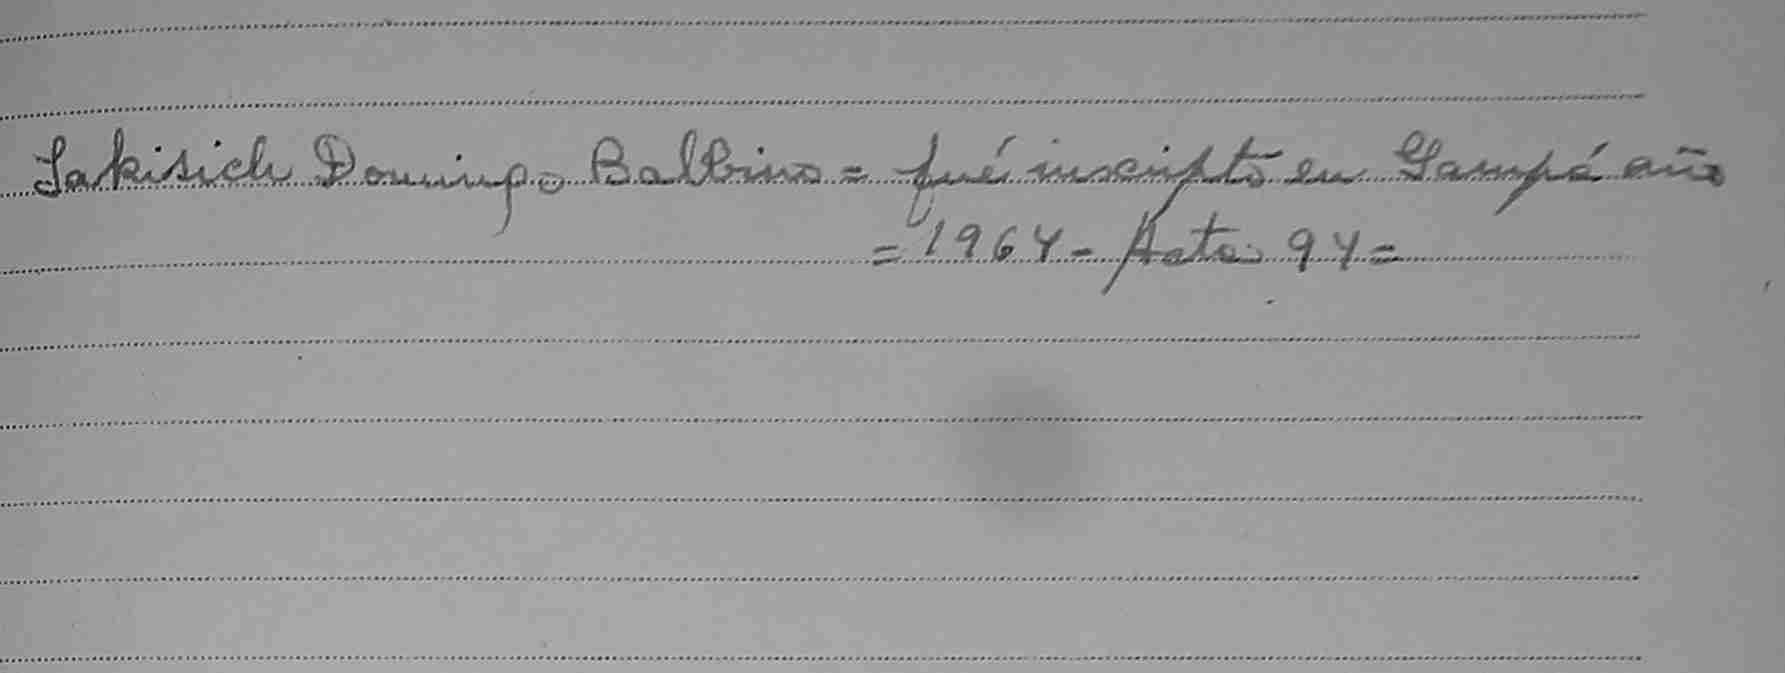 Lakisich Domingo Balbino = fué inscripto en Yampá año
= 1964 - Acta 94 =